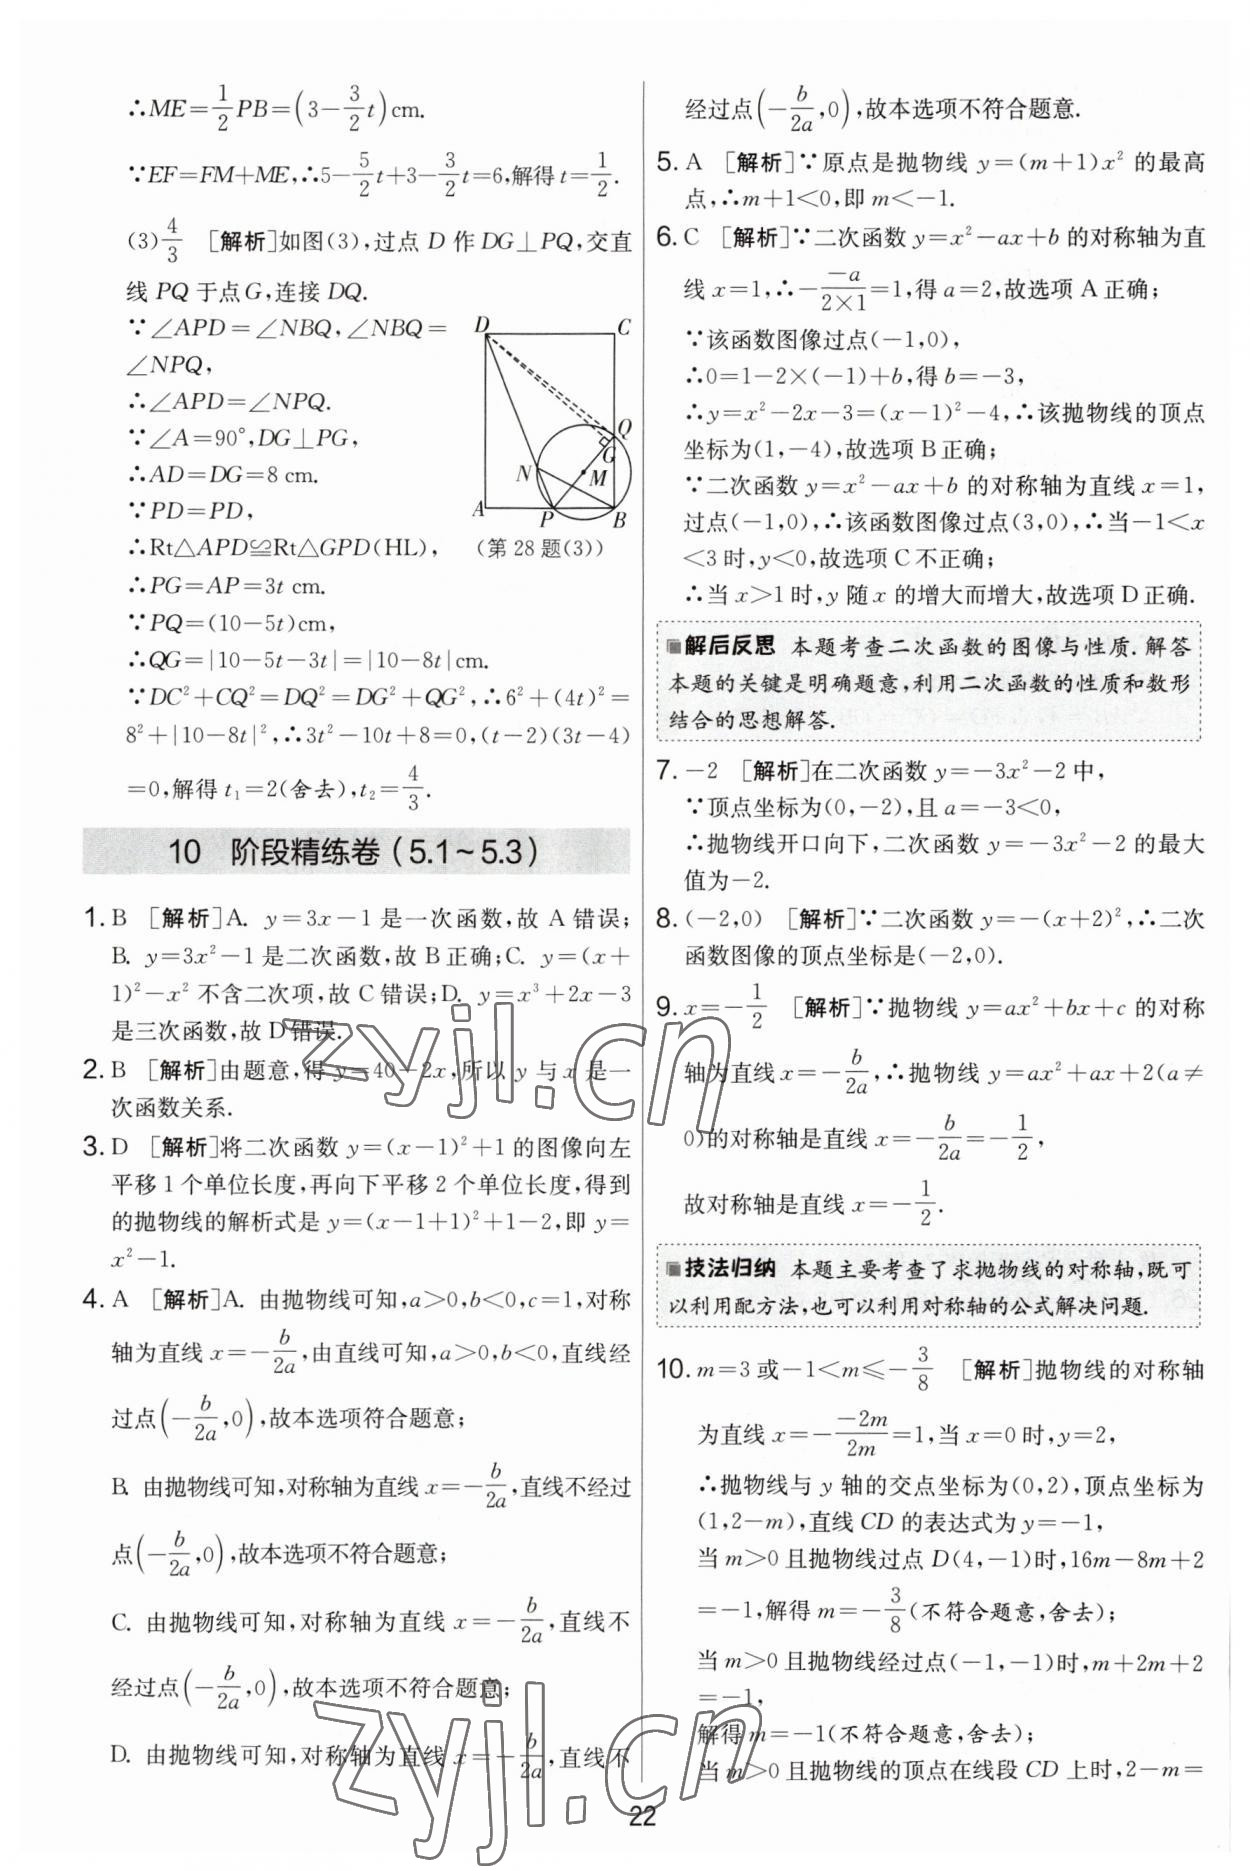 ∴ME=1/2PB=(3-3/2t)cm.
∵EF=FM+ME,∴5-5/2t+3-3/2t=6,解得t=1/2.
(3)4/3 [解析]如图(3),过点D作DG⊥PQ,交直
线PQ于点G,连接DQ.
∵∠APD=∠NBQ,∠NBQ=
∠NPQ,
∴∠APD=∠NPQ.
∵∠A=90°,DG⊥PG,
∴AD=DG=8 cm.
∵PD=PD,
∴Rt△APD≌Rt△GPD(HL),
∴PG=AP=3t cm.
∵PQ=(10-5t)cm,
∴QG=|10-5t-3t|=|10-8t|cm.
∵DC²+CQ²=DQ²=DG²+QG²,∴6²+(4t)²=
8²+|10-8t|²,∴3t²-10t+8=0,(t-2)(3t-4)
=0,解得t₁=2(舍去),t₂=4/3.
D
C
Q
G
N
M
A
P
B
(第28题(3))
10 阶段精练卷(5.1~5.3)
1. B [解析]A. y=3x-1是一次函数,故A错误;
B. y=3x²-1是二次函数,故B正确;C. y=(x+
1)²-x²不含二次项,故C错误;D. y=x³+2x-3
是三次函数,故D错误.
2. B [解析]由题意,得y=40-2x,所以y与x是一
次函数关系.
3. D [解析]将二次函数y=(x-1)²+1的图像向左
平移1个单位长度,再向下平移2个单位长度,得到
的抛物线的解析式是y=(x-1+1)²+1-2,即y=
x²-1.
4. A [解析]A. 由抛物线可知,a>0,b<0,c=1,对称
轴为直线x=-b/2a,由直线可知,a>0,b<0,直线经
过点(-b/2a,0),故本选项符合题意;
B. 由抛物线可知,对称轴为直线x=-b/2a,直线不经过
点(-b/2a,0),故本选项不符合题意;
C. 由抛物线可知,对称轴为直线x=-b/2a,直线不
经过点(-b/2a,0),故本选项不符合题意;
D. 由抛物线可知,对称轴为直线x=-b/2a,直线不
经过点(-b/2a,0),故本选项不符合题意.
5. A [解析]∵原点是抛物线y=(m+1)x²的最高
点,∴m+1<0,即m<-1.
6. C [解析]∵二次函数y=x²-ax+b的对称轴为直
线x=1,∴--a/2×1=1,得a=2,故选项A正确;
∵该函数图像过点(-1,0),
∴0=1-2×(-1)+b,得b=-3,
∴y=x²-2x-3=(x-1)²-4,∴该抛物线的顶点
坐标为(1,-4),故选项B正确;
∵二次函数y=x²-ax+b的对称轴为直线x=1,
过点(-1,0),∴该函数图像过点(3,0),∴当-1<x
<3时,y<0,故选项C不正确;
∴当x>1时,y随x的增大而增大,故选项D正确.
解后反思 本题考查二次函数的图像与性质.解答
本题的关键是明确题意,利用二次函数的性质和数形
结合的思想解答.
7. -2 [解析]在二次函数y=-3x²-2中,
∵顶点坐标为(0,-2),且a=-3<0,
∴抛物线开口向下,二次函数y=-3x²-2的最大
值为-2.
8. (-2,0) [解析]∵二次函数y=-(x+2)²,∴二次
函数图像的顶点坐标是(-2,0).
9. x=-1/2 [解析]∵抛物线y=ax²+bx+c的对称
轴为直线x=-b/2a,∴抛物线y=ax²+ax+2(a≠
0)的对称轴是直线x=-b/2a=-1/2,
故对称轴是直线x=-1/2.
技法归纳 本题主要考查了求抛物线的对称轴,既可
以利用配方法,也可以利用对称轴的公式解决问题.
10. m=3或-1<m≤-3/8 [解析]抛物线的对称轴
为直线x=--2m/2m=1,当x=0时,y=2,
∴抛物线与y轴的交点坐标为(0,2),顶点坐标为
(1,2-m),直线CD的表达式为y=-1,
当m>0且抛物线过点D(4,-1)时,16m-8m+2
=-1,解得m=-3/8(不符合题意,舍去);
当m>0且抛物线经过点(-1,-1)时,m+2m+2
=-1,
解得m=-1(不符合题意,舍去);
当m>0且抛物线的顶点在线段CD上时,2-m=
22
zyjl.cn
zyjl.cn